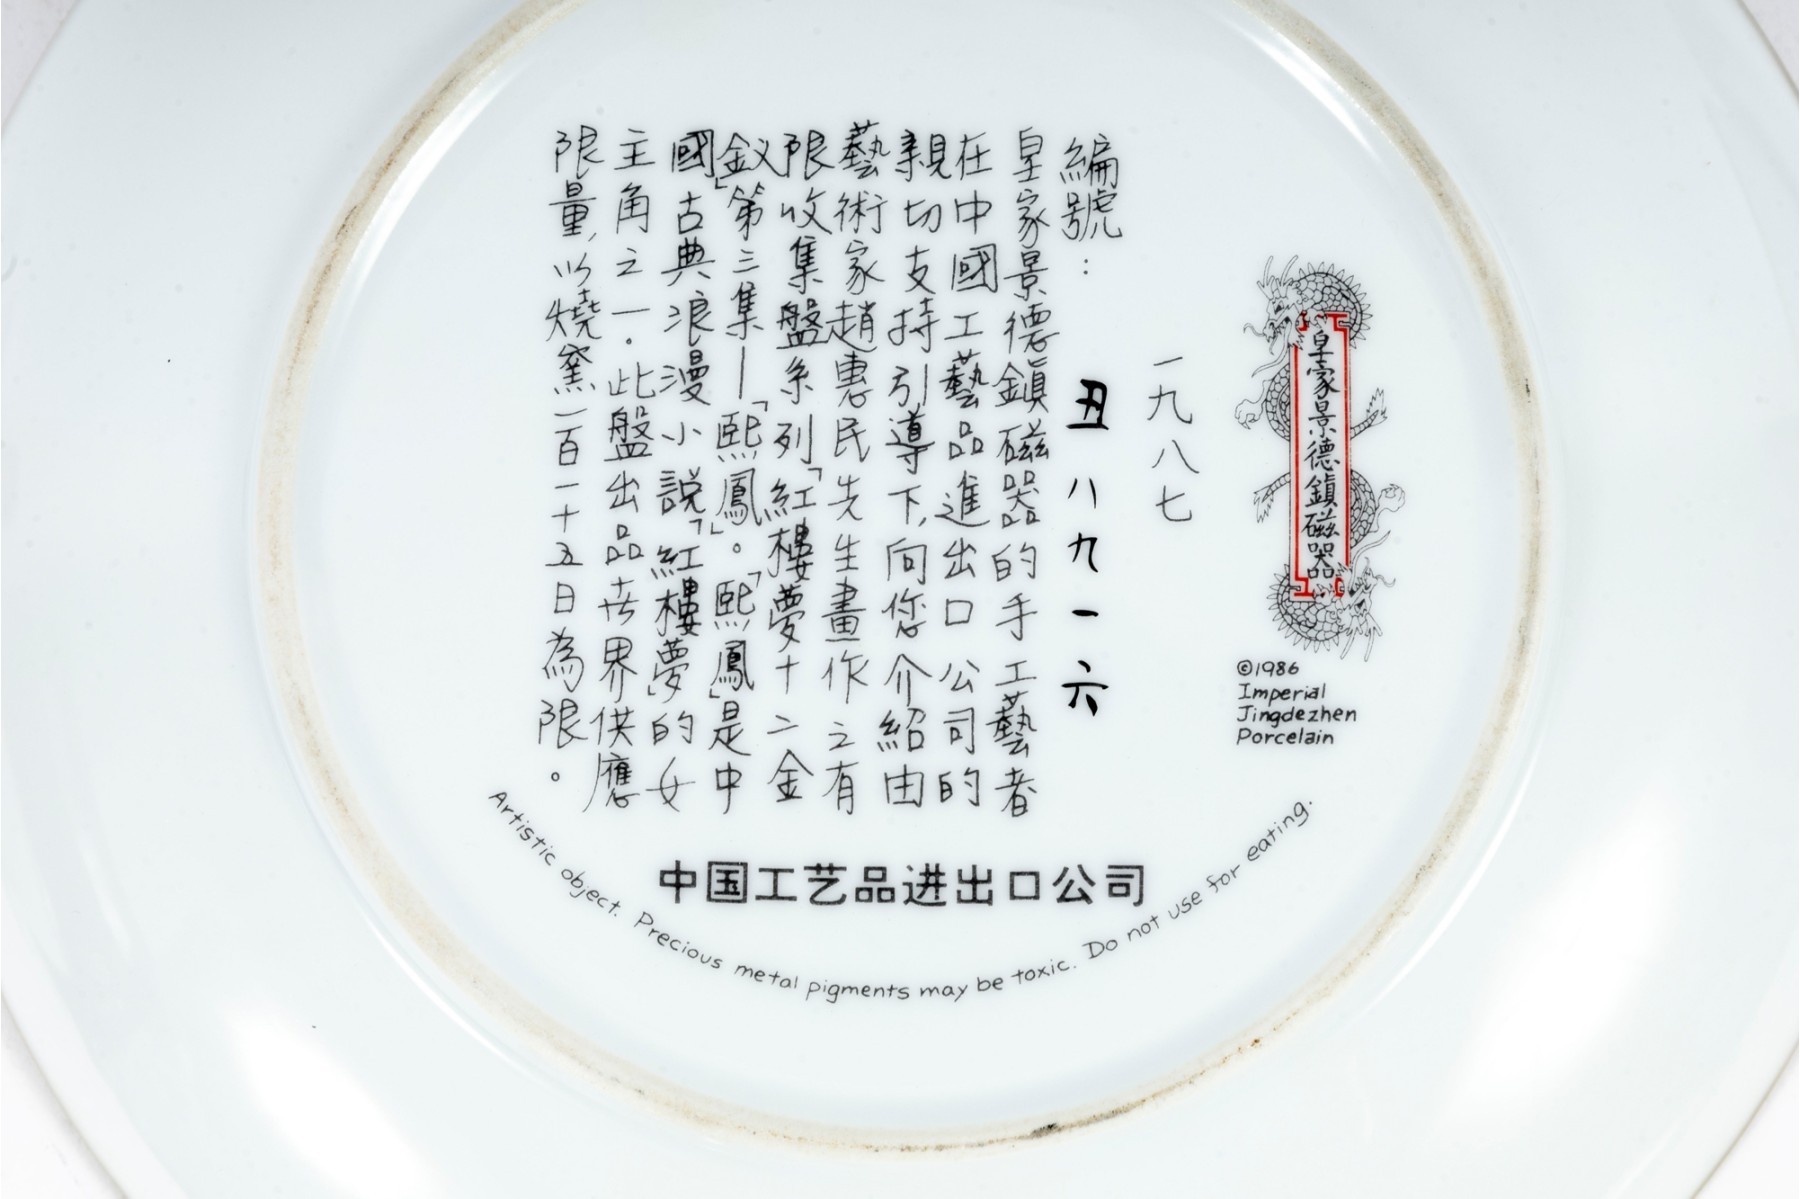 皇家景德鎮磁器
©1986
Imperial
Jingdezhen
Porcelain
一九八七
編號：丑八九一六
皇家景德鎮磁器的手工藝者
在中國工藝品進出口公司的
親切支持引導下，向您介紹由
藝術家趙惠民先生畫作之有
限收集盤系列「紅樓夢十二金
釵」第三集—「熙鳳」。「熙鳳」是中
國古典浪漫小說「紅樓夢」的女
主角之一。此盤出品世界供應
限量，以燒窯一百一十五日為限。
中国工艺品进出口公司
Artistic object. Precious metal pigments may be toxic. Do not use for eating.